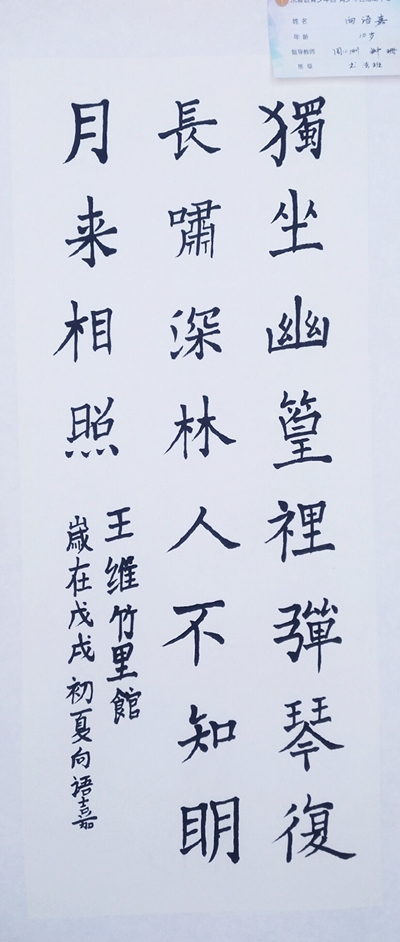 姓名 向语嘉
年龄 10岁
指导教师
獨坐幽篁裡彈琴復
長嘯深林人不知眀
月来相照
王维竹里館
歲在戊戌初夏向语嘉